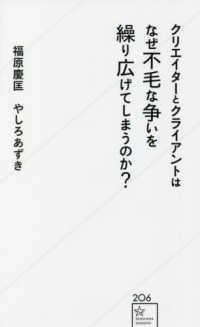 クリエイターとクライアントは
なぜ不毛な争いを
繰り広げてしまうのか?
福原慶匡 やしろあずき
206